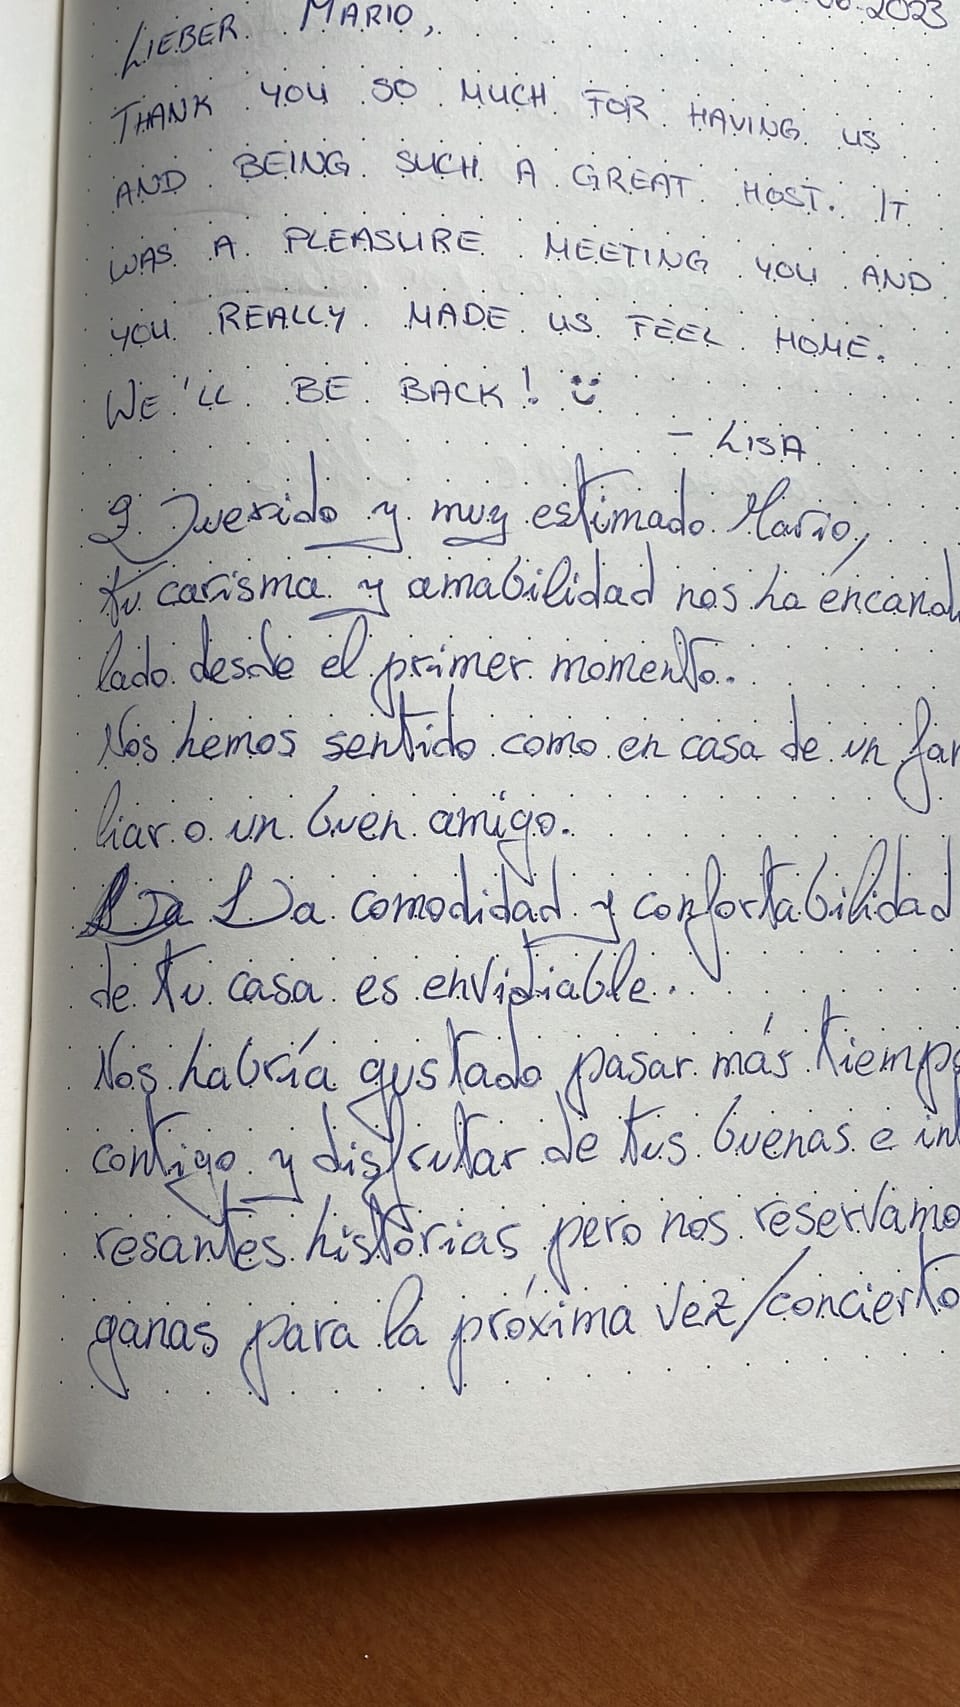 06.2023
LIEBER MARIO,
THANK YOU SO MUCH FOR HAVING US
AND BEING SUCH A GREAT HOST. IT
WAS A PLEASURE MEETING YOU AND
YOU REALLY MADE US FEEL HOME.
WE'LL BE BACK! :)
- LISA
Querido y muy estimado Mario,
tu carisma y amabilidad nos ha encand
lado desde el primer momento.
Nos hemos sentido como en casa de un fam
liar o un buen amigo.
La comodidad y confortabilidad
de tu casa es envidiable.
Nos habría gustado pasar más tiempo
contigo y disfrutar de tus buenas e int
resantes historias pero nos reservamo
ganas para la próxima vez/concierto